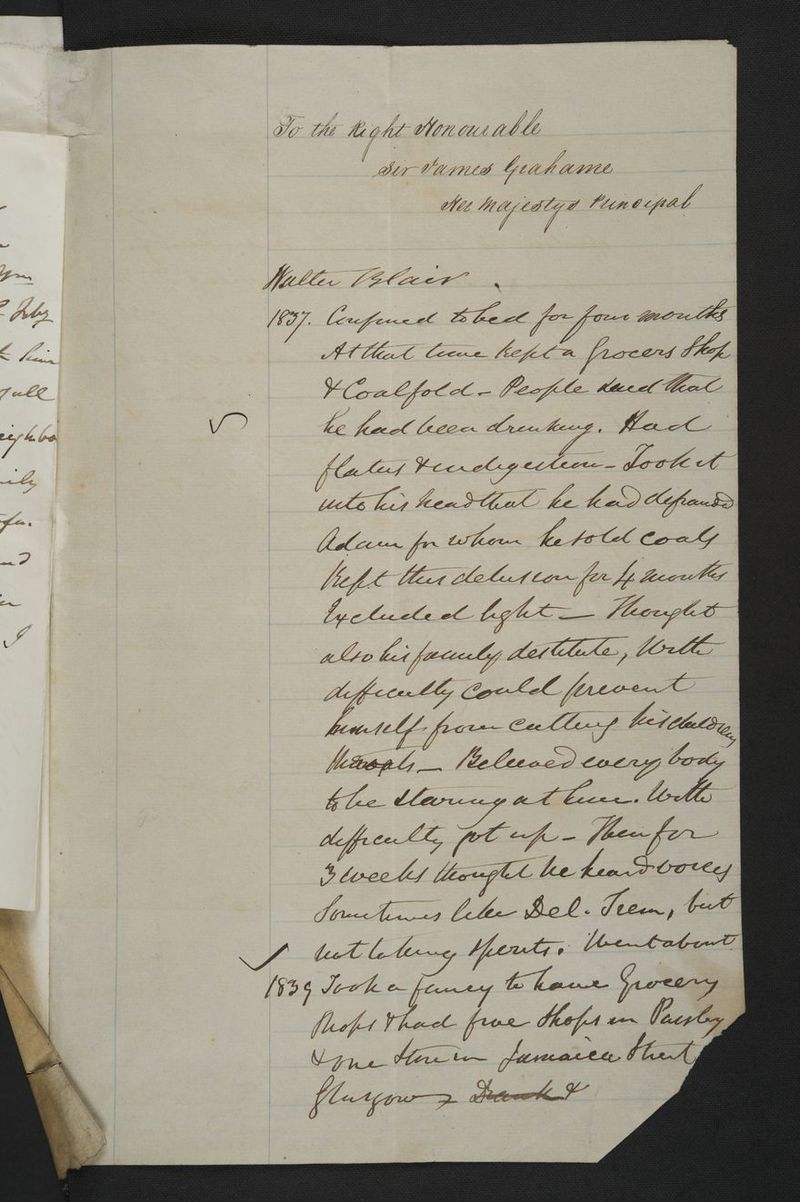 To the Right Honourable
Sir James Grahame
Her Majestys Principal
Walter Blair.
1837. Confined to bed for four months
At that time kept a Grocers Shop
& Coalfold - People said that
he had been drinking. Had
flatus & indigestion - Took it
into his head that he had defrauded
Adam for whom he sold coals
Kept this delusion for 4 months
Excluded light — Thought
also his family destitute, With
difficulty could prevent
himself from cutting his childrens
throats — Believed every body
to be staring at him. With
difficulty got up - Then for
3 weeks thought he heard voices
Sometimes like Del. Trem, but
not taking spirits. Went about
1839 Took a fancy to have Grocery
Shops & had five Shops in Paisley
& one Store in Jamaica Street
Glasgow - Drank &
ym
July
him
full
neighbo
ily
and
I